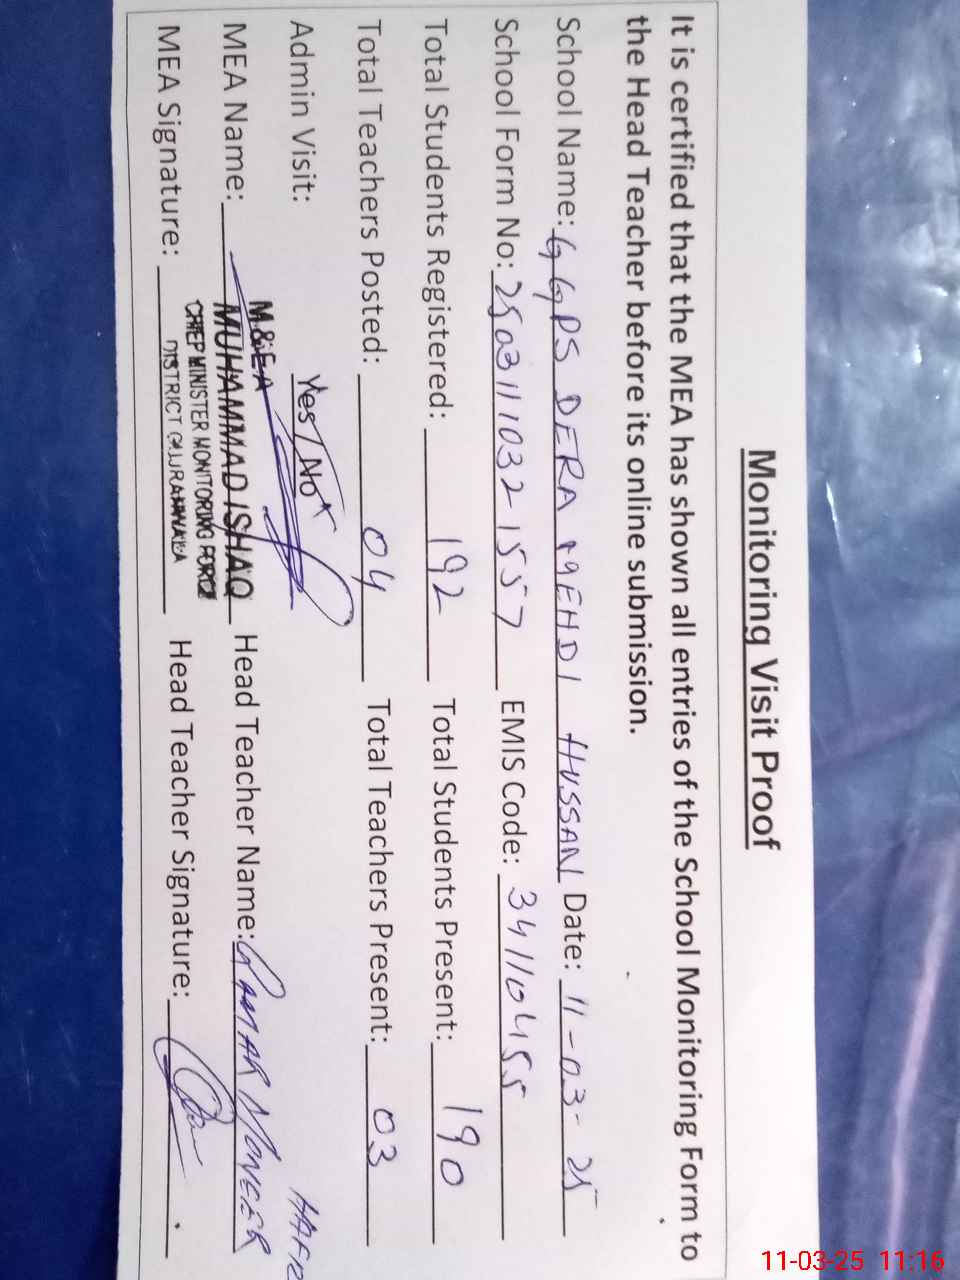 Monitoring Visit Proof
It is certified that the MEA has shown all entries of the School Monitoring Form to
the Head Teacher before its online submission.
School Name: GGPS DERA MEHDI HUSSAN Date: 11-03-25
School Form No: 25031110321557 EMIS Code: 34110455
Total Students Registered: 192 Total Students Present: 190
Total Teachers Posted: 04 Total Teachers Present: 03
Admin Visit: Yes/No
M&EA
MEA Name: MUHAMMAD ISHAQ Head Teacher Name:
CHIEF MINISTER MONITORING FORCE
DISTRICT GUJRANWALA
MEA Signature: Head Teacher Signature:
11-03-25 11:16